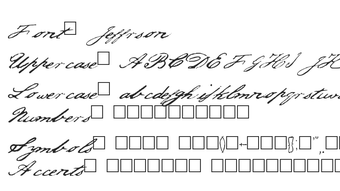 Font□ Jeffrson
Uppercase□ ABCDEFGHIJK
Lowercase□ abcdefghijklmnopqrstuvw
Numbers□ □□□□□□□□□□
Symbols□
Accents□